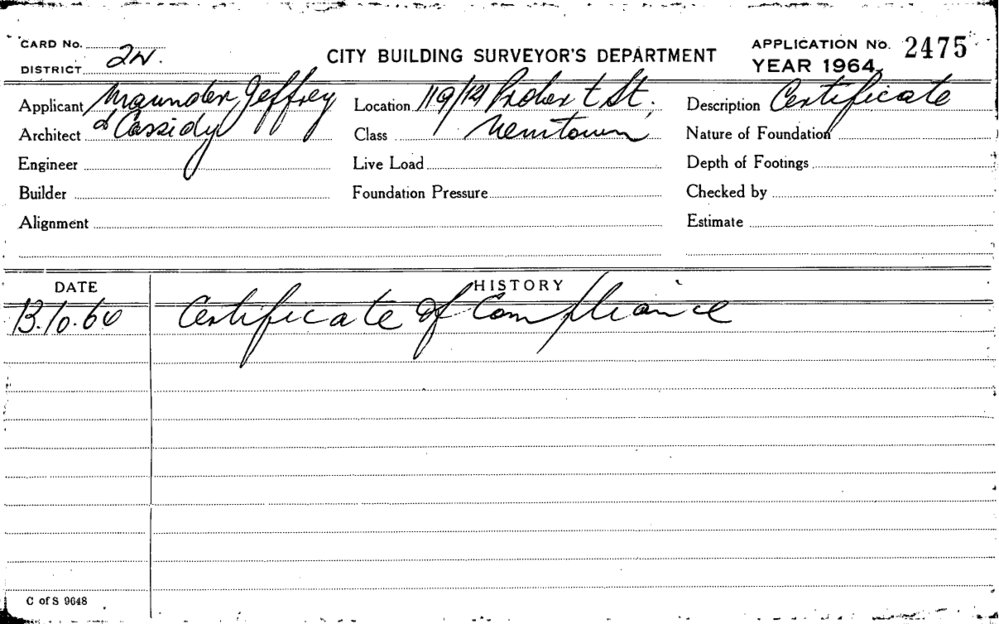 CARD No.
DISTRICT 2W.
CITY BUILDING SURVEYOR'S DEPARTMENT
APPLICATION No. 2475
YEAR 1964
Applicant Maunder, Jeffrey Location 119/121 Probert St. Description Certificate
Architect & Cassidy Class Newtown Nature of Foundation
Engineer Live Load Depth of Footings
Builder Foundation Pressure Checked by
Alignment Estimate
DATE HISTORY
13.10.64 Certificate of Compliance
C of S 9648